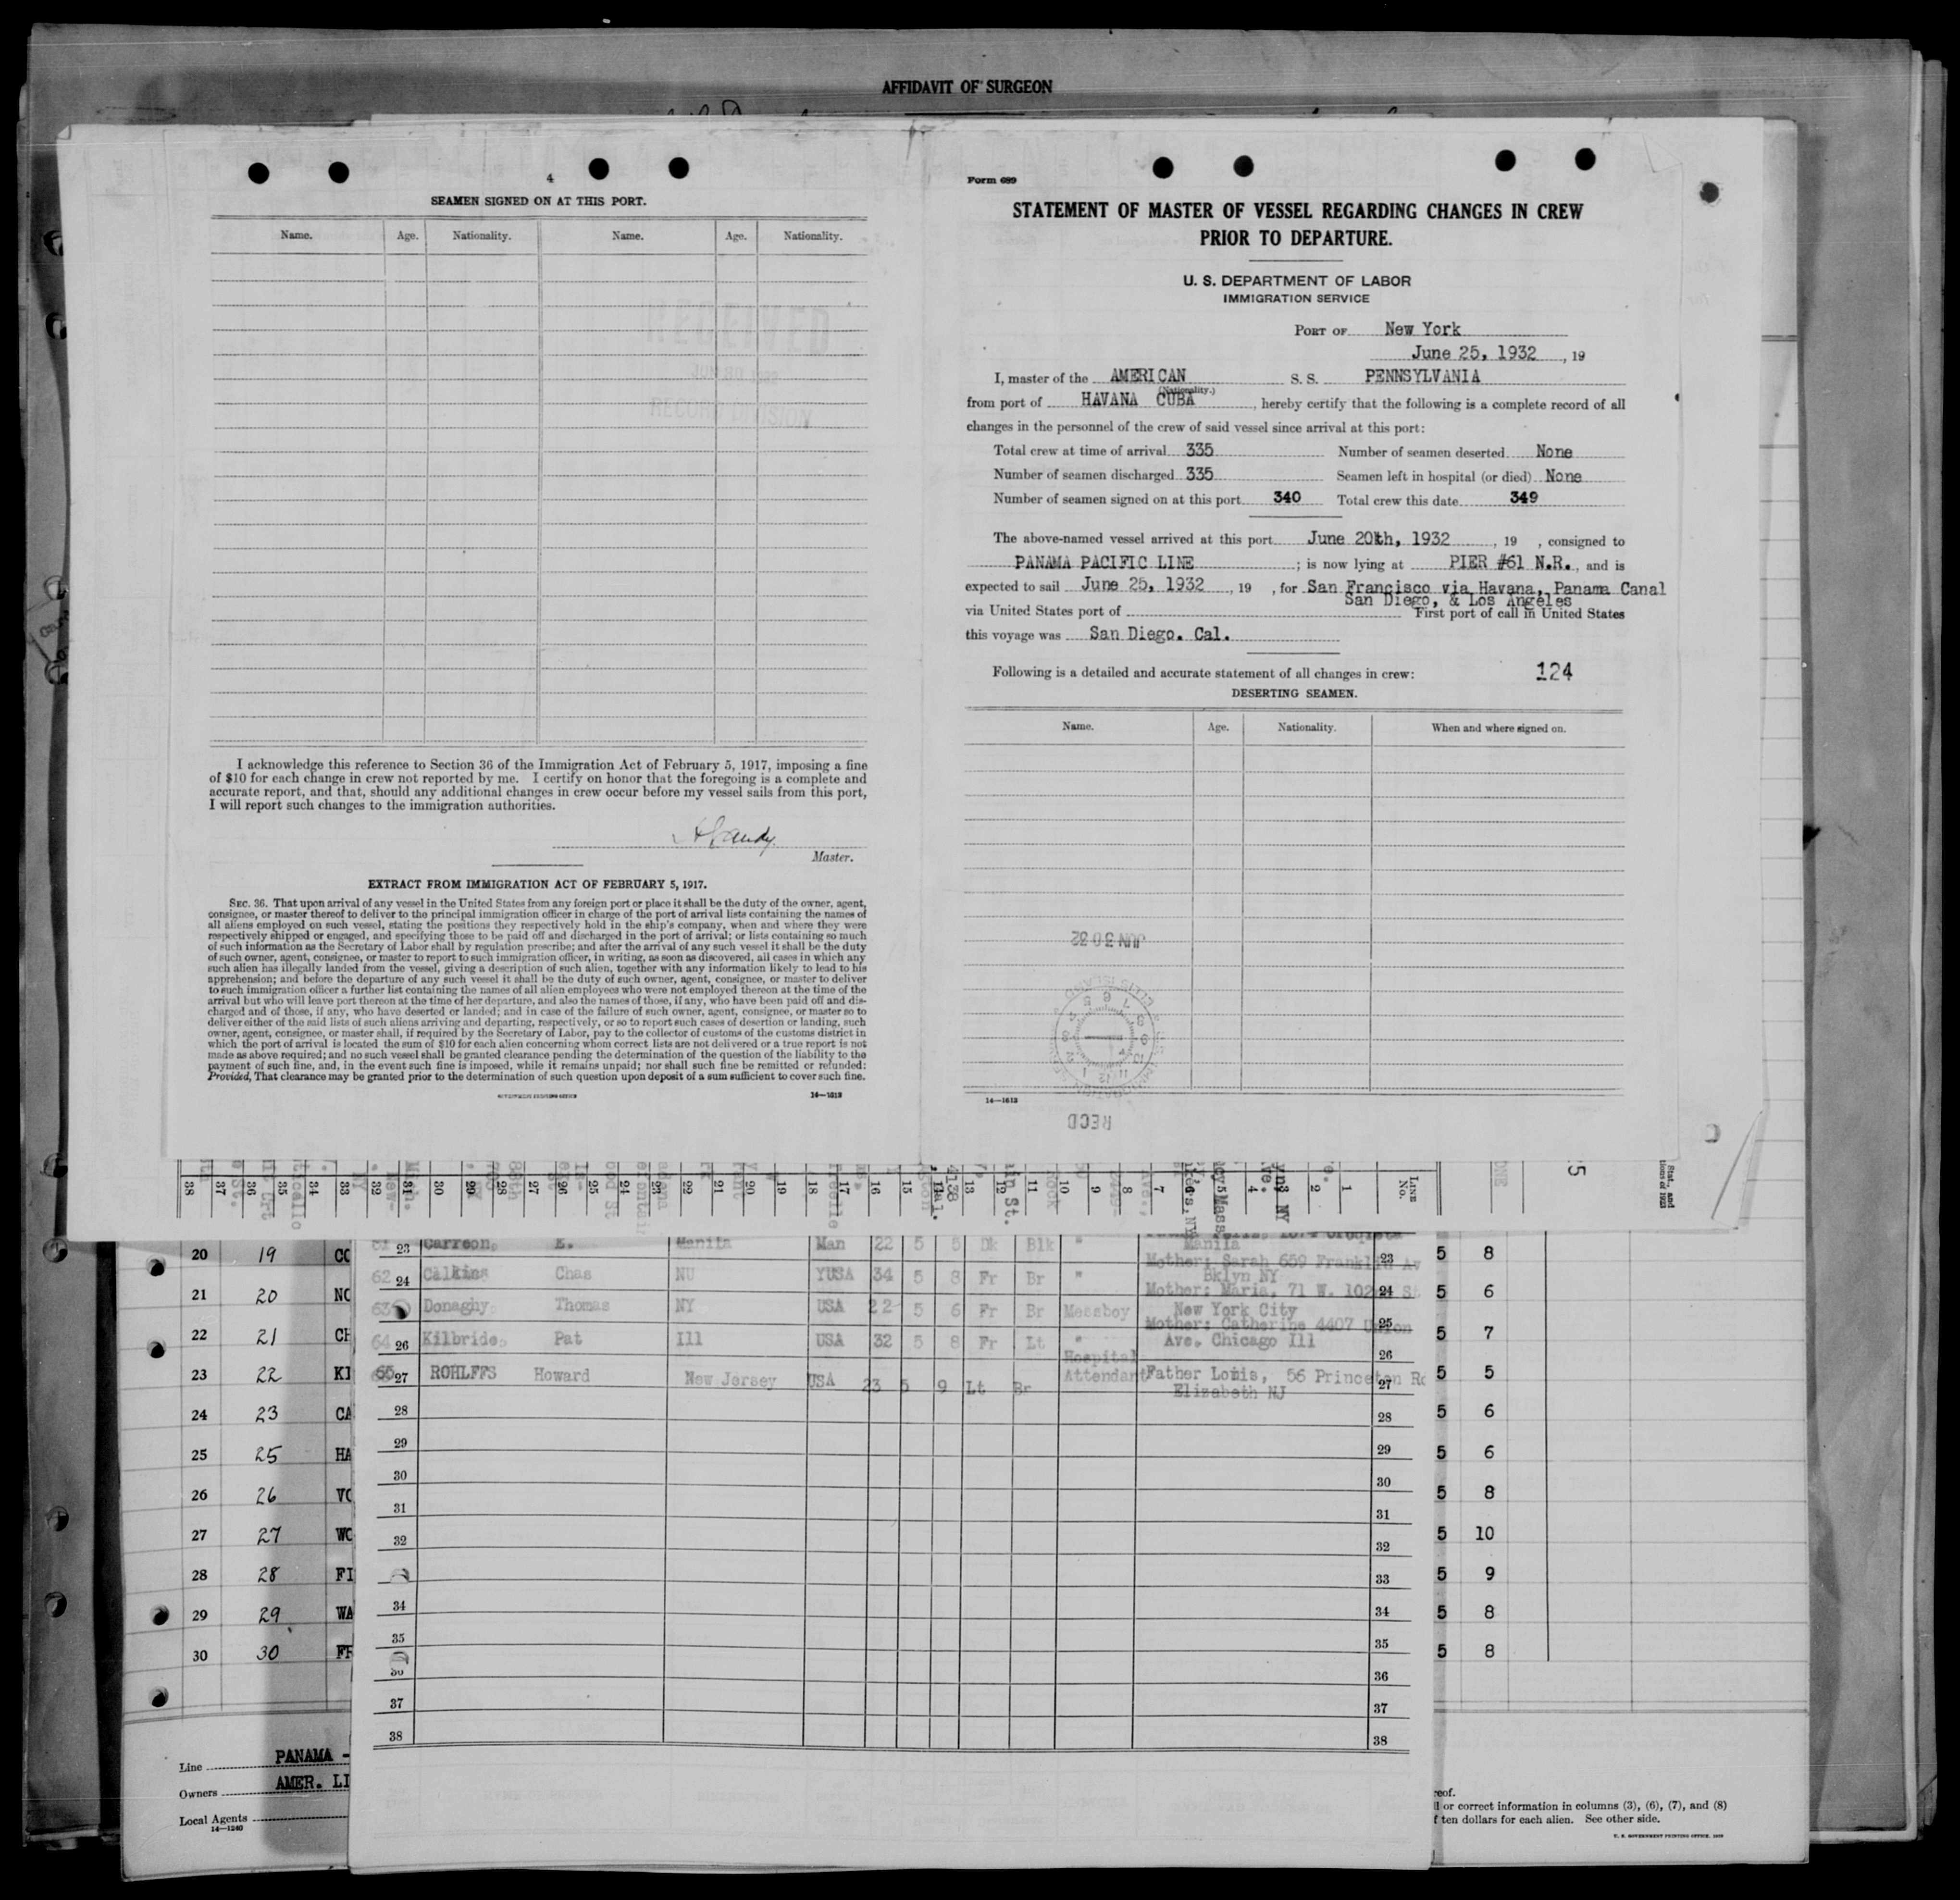 AFFIDAVIT OF SURGEON
4
SEAMEN SIGNED ON AT THIS PORT.
Name. Age. Nationality. Name. Age. Nationality.
RECEIVED
RECORD DIVISION
I acknowledge this reference to Section 36 of the Immigration Act of February 5, 1917, imposing a fine
of $10 for each change in crew not reported by me. I certify on honor that the foregoing is a complete and
accurate report, and that, should any additional changes in crew occur before my vessel sails from this port,
I will report such changes to the immigration authorities.
Master.
EXTRACT FROM IMMIGRATION ACT OF FEBRUARY 5, 1917.
SEC. 36. That upon arrival of any vessel in the United States from any foreign port or place it shall be the duty of the owner, agent,
consignee, or master thereof to deliver to the principal immigration officer in charge of the port of arrival lists containing the names of
all aliens employed on such vessel, stating the positions they respectively hold in the ship's company, when and where they were
respectively shipped or engaged, and specifying those to be paid off and discharged in the port of arrival; or lists containing so much
of such information as the Secretary of Labor shall by regulation prescribe; and after the arrival of any such vessel it shall be the duty
of such owner, agent, consignee, or master to report to such immigration officer, in writing, as soon as discovered, all cases in which any
such alien has illegally landed from the vessel, giving a description of such alien, together with any information likely to lead to his
apprehension; and before the departure of any such vessel it shall be the duty of such owner, agent, consignee, or master to deliver
to such immigration officer a further list containing the names of all alien employees who were not employed thereon at the time of the
arrival but who will leave port thereon at the time of her departure, and also the names of those, if any, who have been paid off and dis-
charged and of those, if any, who have deserted or landed; and in case of the failure of such owner, agent, consignee, or master so to
deliver either of the said lists of such aliens arriving and departing, respectively, or so to report such cases of desertion or landing, such
owner, agent, consignee, or master shall, if required by the Secretary of Labor, pay to the collector of customs of the customs district in
which the port of arrival is located the sum of $10 for each alien concerning whom correct lists are not delivered or a true report is not
made as above required; and no such vessel shall be granted clearance pending the determination of the question of the liability to the
payment of such fine, and, in the event such fine is imposed, while it remains unpaid; nor shall such fine be remitted or refunded:
Provided, That clearance may be granted prior to the determination of such question upon deposit of a sum sufficient to cover such fine.
GOVERNMENT PRINTING OFFICE 14—1613
Form 689
STATEMENT OF MASTER OF VESSEL REGARDING CHANGES IN CREW
PRIOR TO DEPARTURE.
U. S. DEPARTMENT OF LABOR
IMMIGRATION SERVICE
PORT OF New York
June 25, 1932 , 19
I, master of the AMERICAN S. S. PENNSYLVANIA
(Nationality.)
from port of HAVANA CUBA , hereby certify that the following is a complete record of all
changes in the personnel of the crew of said vessel since arrival at this port:
Total crew at time of arrival 335 Number of seamen deserted None
Number of seamen discharged 335 Seamen left in hospital (or died) None
Number of seamen signed on at this port 340 Total crew this date 349
The above-named vessel arrived at this port June 20th, 1932 , 19 , consigned to
PANAMA PACIFIC LINE ; is now lying at PIER #61 N.R. , and is
expected to sail June 25, 1932 , 19 , for San Francisco via Havana, Panama Canal
San Diego, & Los Angeles
via United States port of First port of call in United States
this voyage was San Diego. Cal.
Following is a detailed and accurate statement of all changes in crew: 124
DESERTING SEAMEN.
Name. Age. Nationality. When and where signed on.
JUN 30 32
ELLIS ISLAND
RECD
14—1613
38 37 36 35 34 33 32 31 30 29 28 27 26 25 24 23 22 21 20 19 18 17 16 15 13 12 11 10 9 8 7 6 5 4 3 2 1 LINE No.
20 19 CO 23 Carreon, E. Manila Man 22 5 5 Dk Blk " Manila 23 5 8
62 24 Calkins Chas NU YUSA 34 5 8 Fr Br " Mother; Sarah 659 Franklin Av
Bklyn NY
21 20 NO 24 5 6
63 Donaghy Thomas NY USA 22 5 6 Fr Br Messboy Mother: Maria, 71 W. 102 St
New York City
22 21 CH 25 5 7
64 26 Kilbride, Pat Ill USA 32 5 8 Fr Lt " Mother: Catherine 4407 Union
Ave. Chicago Ill
26
23 22 KI 65 27 ROHLFFS Howard New Jersey USA 23 5 9 Lt Br Hospital Attendant Father Louis, 56 Princeton Rd
Elizabeth NJ
27 5 5
24 23 CA 28 28 5 6
25 25 HA 29 29 5 6
26 26 VO 30 30 5 8
31 31
27 27 WO 32 32 5 10
28 28 FI 33 5 9
29 29 WA 34 34 5 8
30 30 FR 35 35 5 8
36 36
37 37
38 38
Line PANAMA -
Owners AMER. LI
Local Agents
14—1240
reof.
l or correct information in columns (3), (6), (7), and (8)
f ten dollars for each alien. See other side.
U. S. GOVERNMENT PRINTING OFFICE